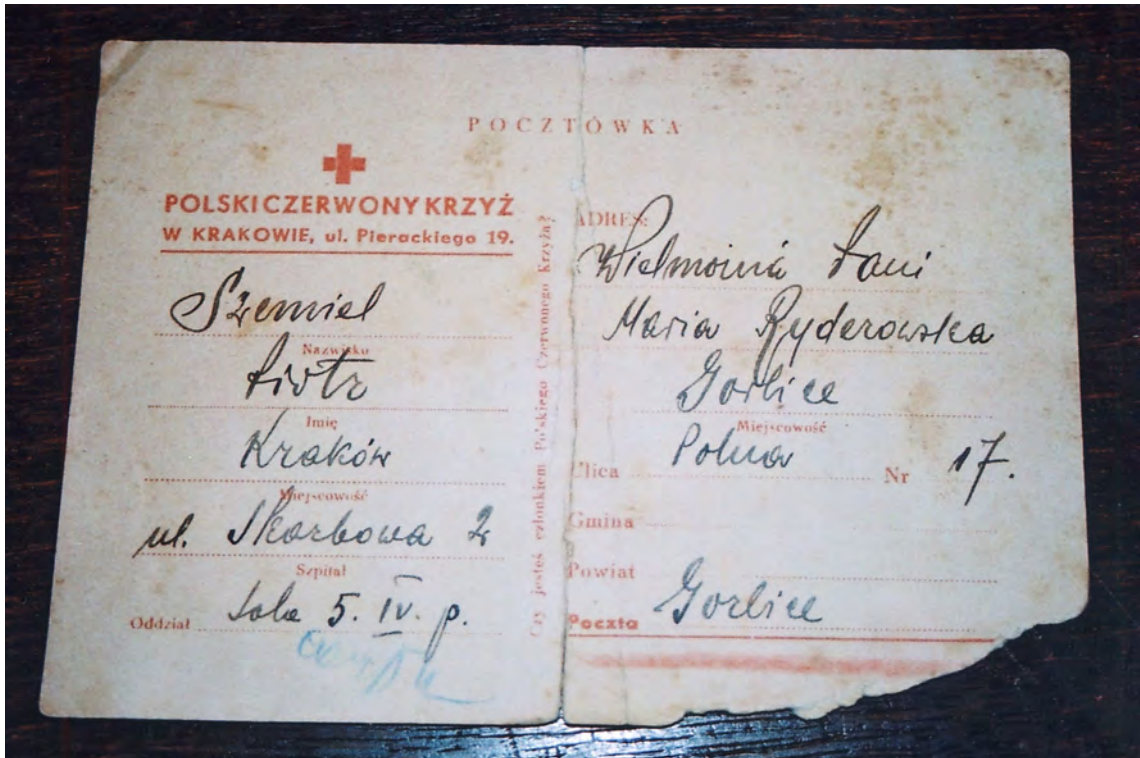 POCZTÓWKA
POLSKI CZERWONY KRZYŻ
W KRAKOWIE, ul. Pierackiego 19.
Szemiel
Nazwisko
Piotr
Imię
Kraków
Miejscowość
ul. Skarbowa 2
Szpital
Oddział Sala 5. IV. p.
Czy jesteś członkiem Polskiego Czerwonego Krzyża?
ADRES:
Wielmożna Pani
Maria Ryderowska
Gorlice
Miejscowość
Ulica Polna Nr 17.
Gmina
Powiat
Poczta Gorlice